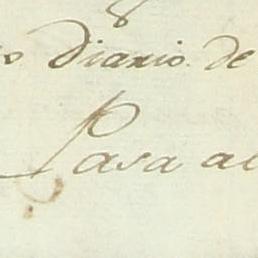 Diario de
Pasa al